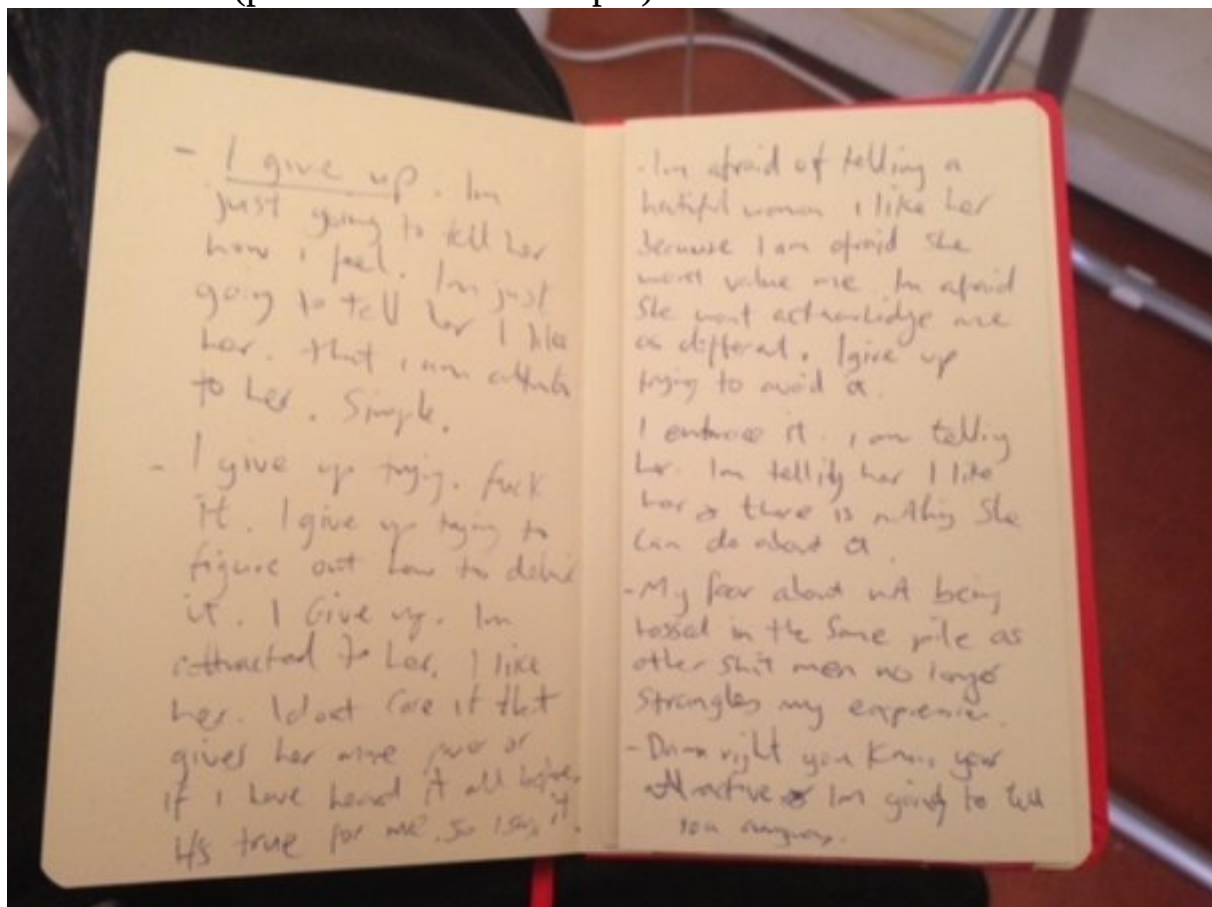 - I give up. Im
just going to tell her
how i feel. Im just
going to tell her I like
her. that i am
to her. Simple.
- I give up trying. fuck
it. I give up trying to
figure out how to
it. I Give up. Im
attracted to her. I like
her. I dont care if that
gives her more power or
if I have heard it all before.
it's true for me. so I say it.
- Im afraid of telling a
woman i like her
Because I am afraid she
wont value me. Im afraid
She wont acknowledge me
as different. I give up
trying to avoid it.
I embrace it. i am telling
her. Im telling her I like
her & there is nothing She
Can do about it.
- My fear about not being
tossed in the Same pile as
other shit men no longer
Strangles my
- Damn right you Know your
attractive & Im going to tell
you anyway.